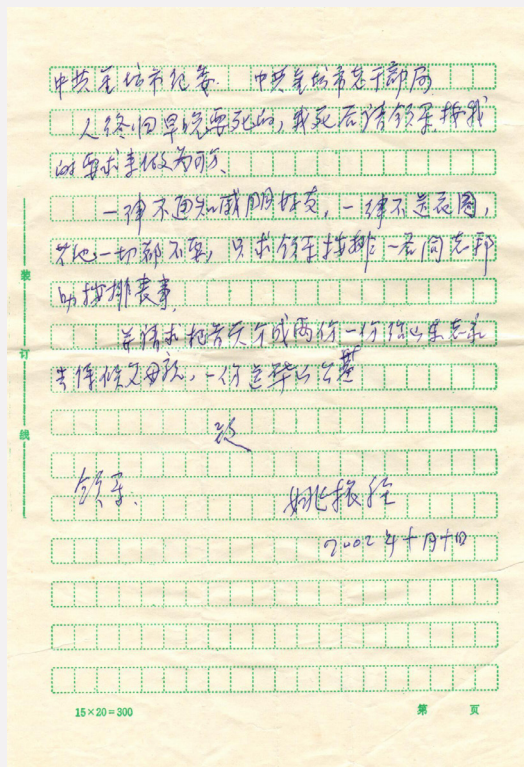 中共 市纪委 中共 市老干部局
人终归早晚要死的,我死后请领导按我
的要求事做为可
一律不通知戚朋好友,一律不送花圈,
其他一切都不要,只求领导按排一名同志帮
助按排丧事,
并请求把骨灰分成两份一份给山东老家
父母 ,一份送 山公墓
致
领导.
姚振经
2002年十月十日
装
订
线
15×20=300
第 页